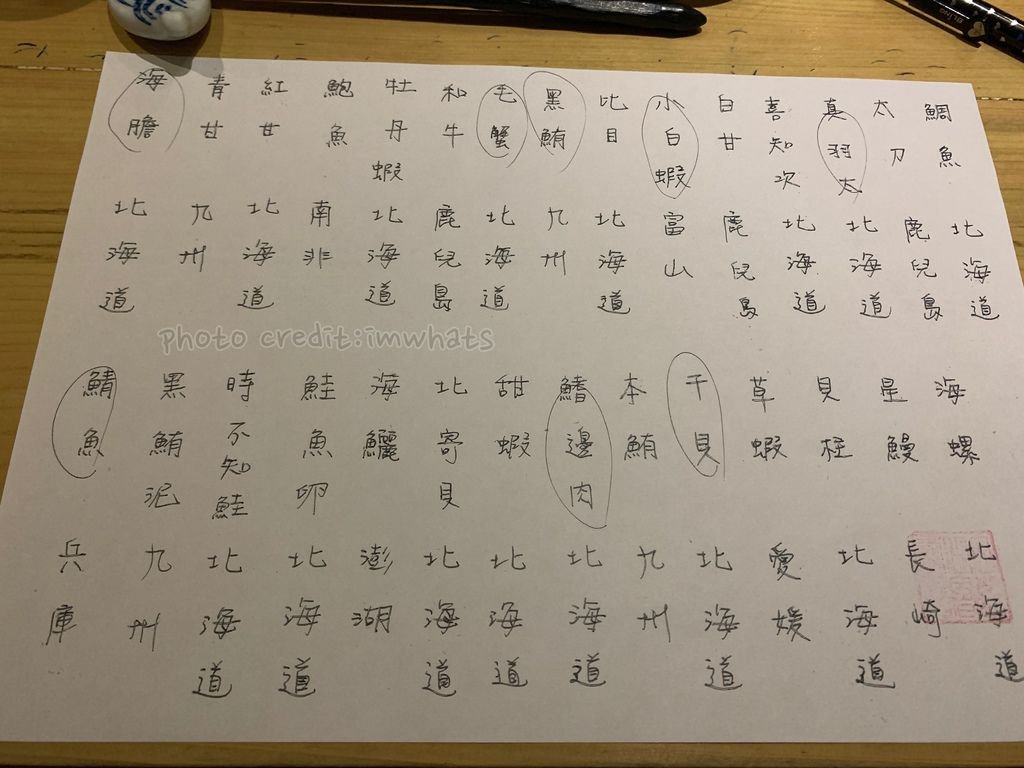 鯛魚 北海道
太刀 鹿兒島
真羽太 北海道
喜知次 北海道
白甘 鹿兒島
小白蝦 富山
比目 北海道
黑鮪 九州
毛蟹 北海道
和牛 鹿兒島
牡丹蝦 北海道
鮑魚 南非
紅甘 北海道
青甘 九州
海膽 北海道
photo credit:imwhats
海螺 北海道
星鰻 長崎
貝柱 北海道
草蝦 愛媛
干貝 北海道
本鮪 九州
鰭邊肉 北海道
甜蝦 北海道
北寄貝 北海道
海鱺 澎湖
鮭魚卵 北海道
時不知鮭 北海道
黑鮪泥 九州
鯖魚 兵庫